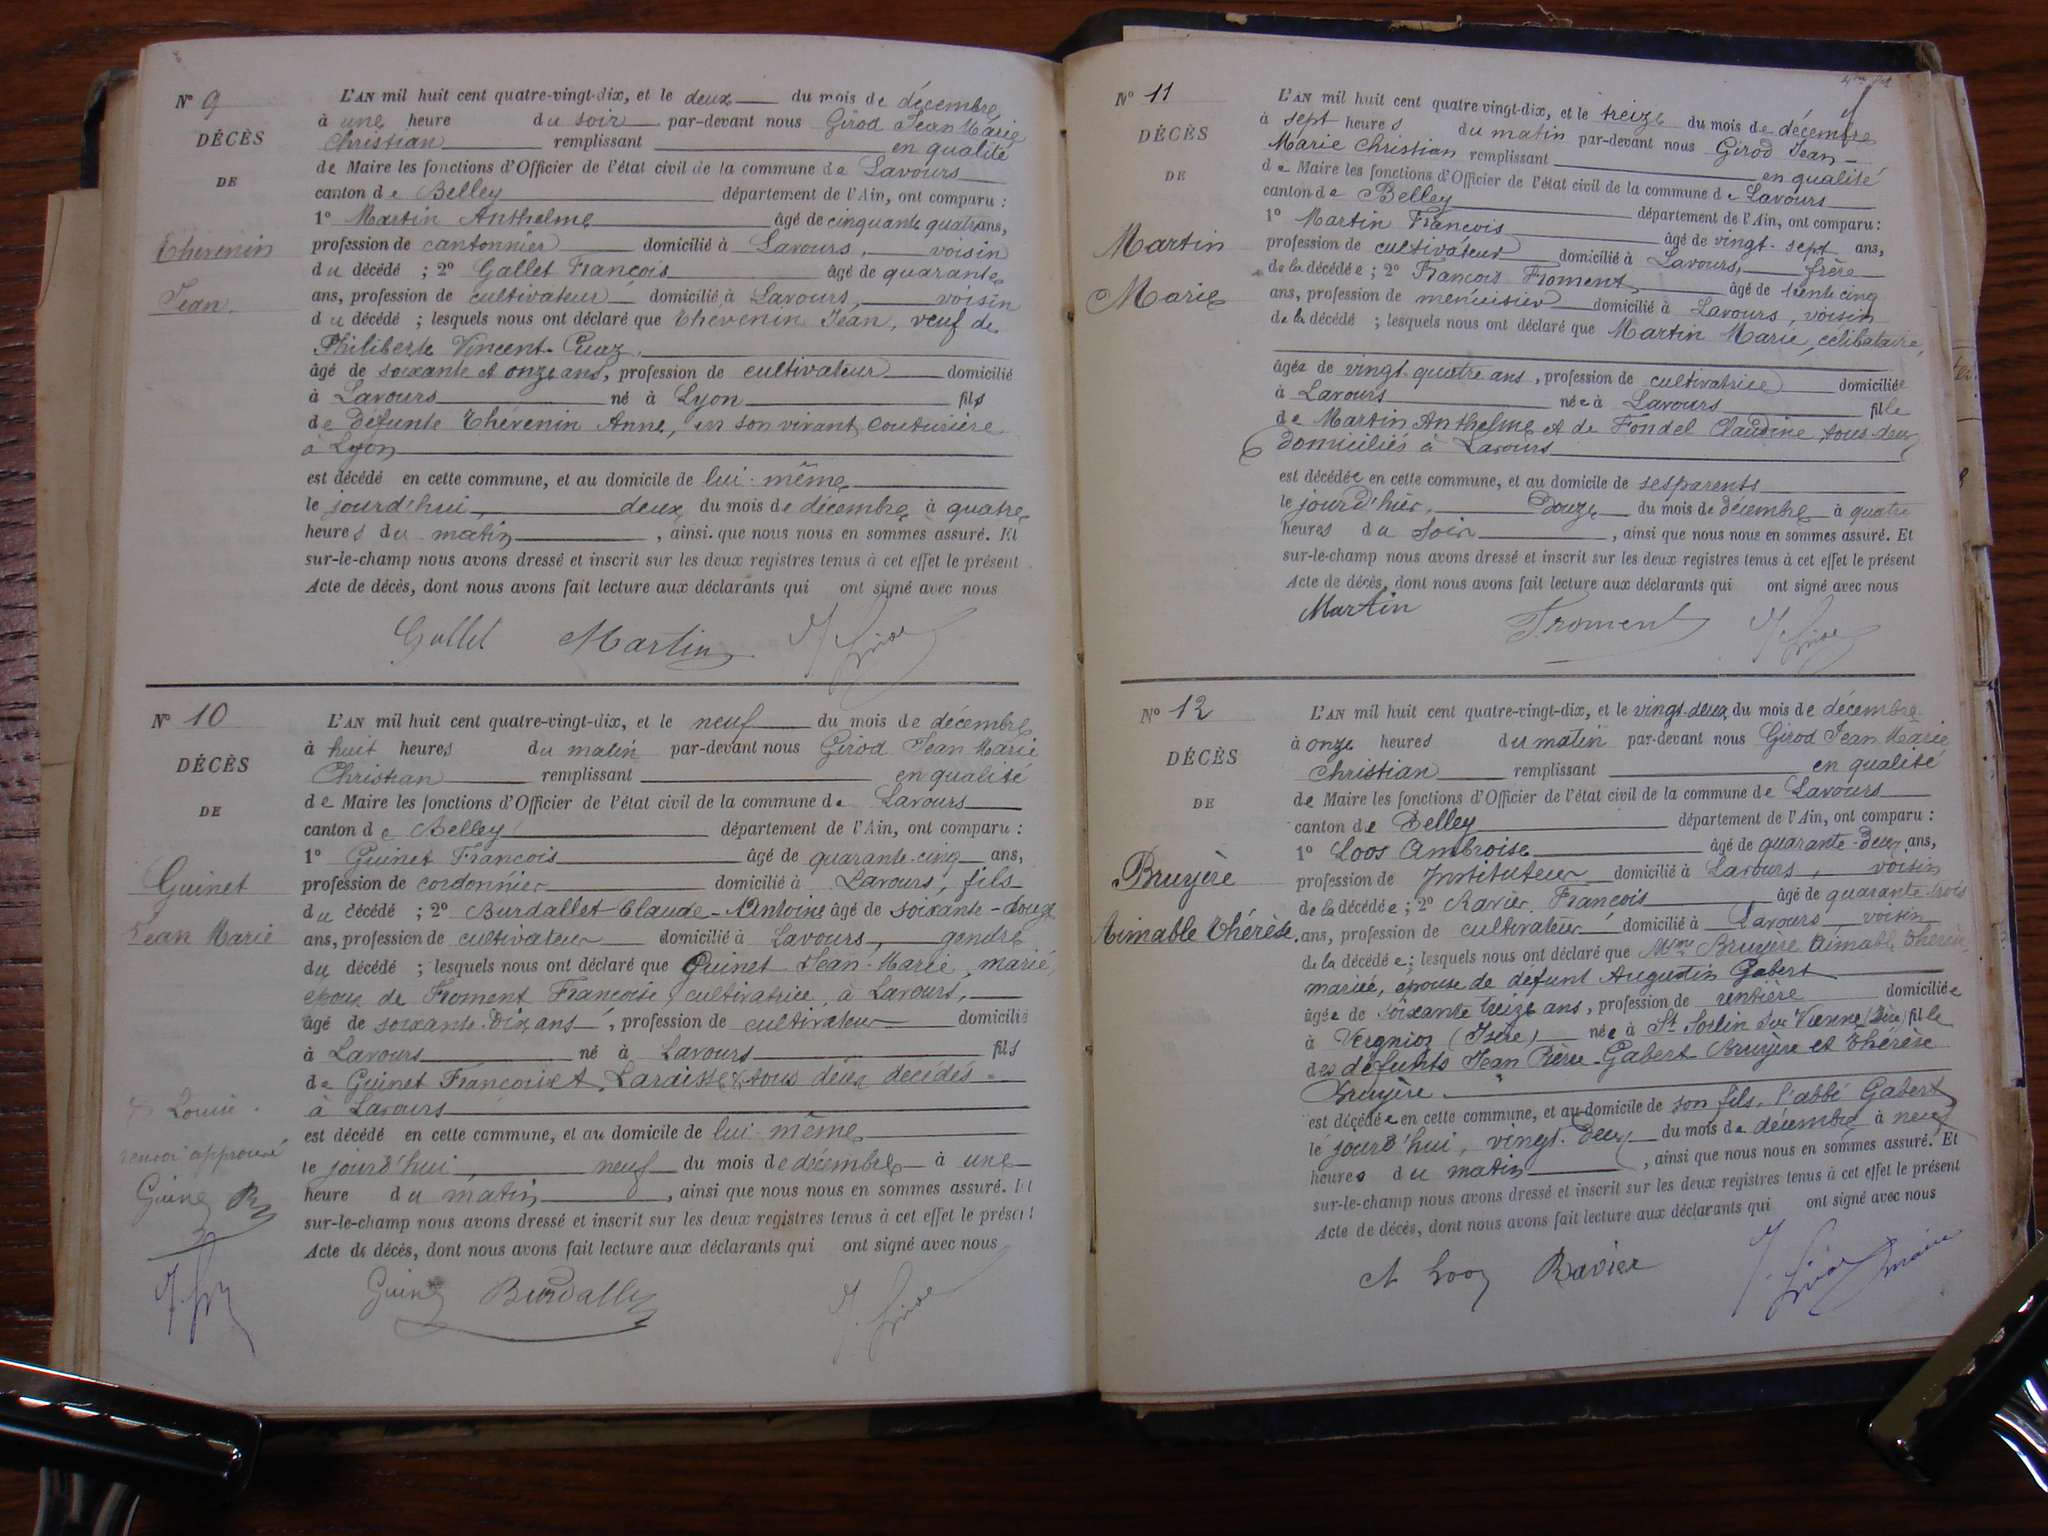 N° 9
DÉCÈS
DE
Thevenin
Jean.
L'AN mil huit cent quatre-vingt-dix, et le deux du mois de décembre
à une heure du soir par-devant nous Girod Jean Marie
Christian remplissant en qualité
de Maire les fonctions d'Officier de l'état civil de la commune de Lavours
canton de Belley département de l'Ain, ont comparu :
1° Martin Anthelme âgé de cinquante quatre ans,
profession de cantonnier domicilié à Lavours, voisin
du décédé ; 2° Gallet François âgé de quarante
ans, profession de cultivateur domicilié à Lavours, voisin
du décédé ; lesquels nous ont déclaré que Thevenin Jean, veuf de
Philiberte Vincent-Cuaz,
âgé de soixante et onze ans, profession de cultivateur domicilié
à Lavours né à Lyon fils
de défunte Thévenin Anne, en son vivant couturière
à Lyon
est décédé en cette commune, et au domicile de lui-même
le jourd'hui, deux du mois de décembre à quatre
heures du matin, ainsi que nous nous en sommes assuré. Et
sur-le-champ nous avons dressé et inscrit sur les deux registres tenus à cet effet le présent
Acte de décès, dont nous avons fait lecture aux déclarants qui ont signé avec nous
Gallet Martin J Girod
N° 10
DÉCÈS
DE
Guinet
Jean Marie
L'AN mil huit cent quatre-vingt-dix, et le neuf du mois de décembre
à huit heures du matin par-devant nous Girod Jean Marie
Christian remplissant en qualité
de Maire les fonctions d'Officier de l'état civil de la commune de Lavours
canton de Belley département de l'Ain, ont comparu :
1° Guinet François âgé de quarante-cinq ans,
profession de cordonnier domicilié à Lavours, fils
du décédé ; 2° Burdallet Claude-Antoine âgé de soixante-douze
ans, profession de cultivateur domicilié à Lavours, gendre
du décédé ; lesquels nous ont déclaré que Guinet Jean-Marie, marié,
époux de Froment Françoise, cultivatrice, à Lavours,
âgé de soixante-dix ans, profession de cultivateur domicilié
à Lavours né à Lavours fils
de Guinet François et tous deux décédés
à Lavours
est décédé en cette commune, et au domicile de lui-même
le jourd'hui, neuf du mois de décembre à une
heure du matin, ainsi que nous nous en sommes assuré. Et
sur-le-champ nous avons dressé et inscrit sur les deux registres tenus à cet effet le présent
Acte de décès, dont nous avons fait lecture aux déclarants qui ont signé avec nous
Louise.
renvoi approuvé
Guinet
Guinet Burdallet J. Girod
N° 11
DÉCÈS
DE
Martin
Marie
L'AN mil huit cent quatre vingt-dix, et le treize du mois de décembre
à sept heures du matin par-devant nous Girod Jean-
Marie Christian remplissant en qualité
de Maire les fonctions d'Officier de l'état civil de la commune de Lavours
canton de Belley département de l'Ain, ont comparu :
1° Martin François âgé de vingt-sept ans,
profession de cultivateur domicilié à Lavours, frère
de la décédée ; 2° François Froment, âgé de trente cinq
ans, profession de menuisier domicilié à Lavours, voisin
de la décédé ; lesquels nous ont déclaré que Martin Marie, célibataire,
âgée de vingt-quatre ans, profession de cultivatrice domiciliée
à Lavours née à Lavours fille
de Martin Anthelme et de Fondel Claudine, tous deux
domiciliés à Lavours
est décédée en cette commune, et au domicile de ses parents
le jourd'hier, douze du mois de décembre à quatre
heures du soir, ainsi que nous nous en sommes assuré. Et
sur-le-champ nous avons dressé et inscrit sur les deux registres tenus à cet effet le présent
Acte de décès, dont nous avons fait lecture aux déclarants qui ont signé avec nous
Martin Froment J Girod
N° 12
DÉCÈS
DE
Bruyère
Aimable Thérèse.
L'AN mil huit cent quatre-vingt-dix, et le vingt-deux du mois de décembre
à onze heures du matin par-devant nous Girod Jean Marie
Christian remplissant en qualité
de Maire les fonctions d'Officier de l'état civil de la commune de Lavours
canton de Belley département de l'Ain, ont comparu :
1° Loos Ambroise âgé de quarante-deux ans,
profession de Instituteur domicilié à Lavours, voisin
de la décédée ; 2° Ravier François âgé de quarante-trois
ans, profession de cultivateur domicilié à Lavours voisin
de la décédée ; lesquels nous ont déclaré que Mme Bruyère Aimable Thérèse,
mariée, épouse de defunt Augustin Gabert
âgée de soixante treize ans, profession de rentière domiciliée
à Vergnioz (Isère) née à St Sorlin de Vienne (Isère) fille
des défunts Jean Pierre-Gabert Bruyère et Thérèse
Bruyère.
est décédée en cette commune, et au domicile de son fils, l'abbé Gabert
le jourd'hui, vingt-deux du mois de décembre à neuf
heures du matin, ainsi que nous nous en sommes assuré. Et
sur-le-champ nous avons dressé et inscrit sur les deux registres tenus à cet effet le présent
Acte de décès, dont nous avons fait lecture aux déclarants qui ont signé avec nous
A Loos Ravier J. Girod maire